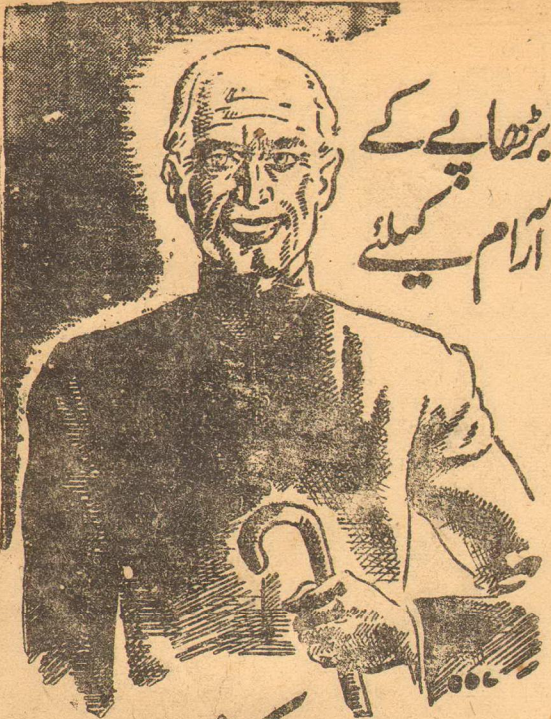 بڑھاپے کے
آرام کیلئے